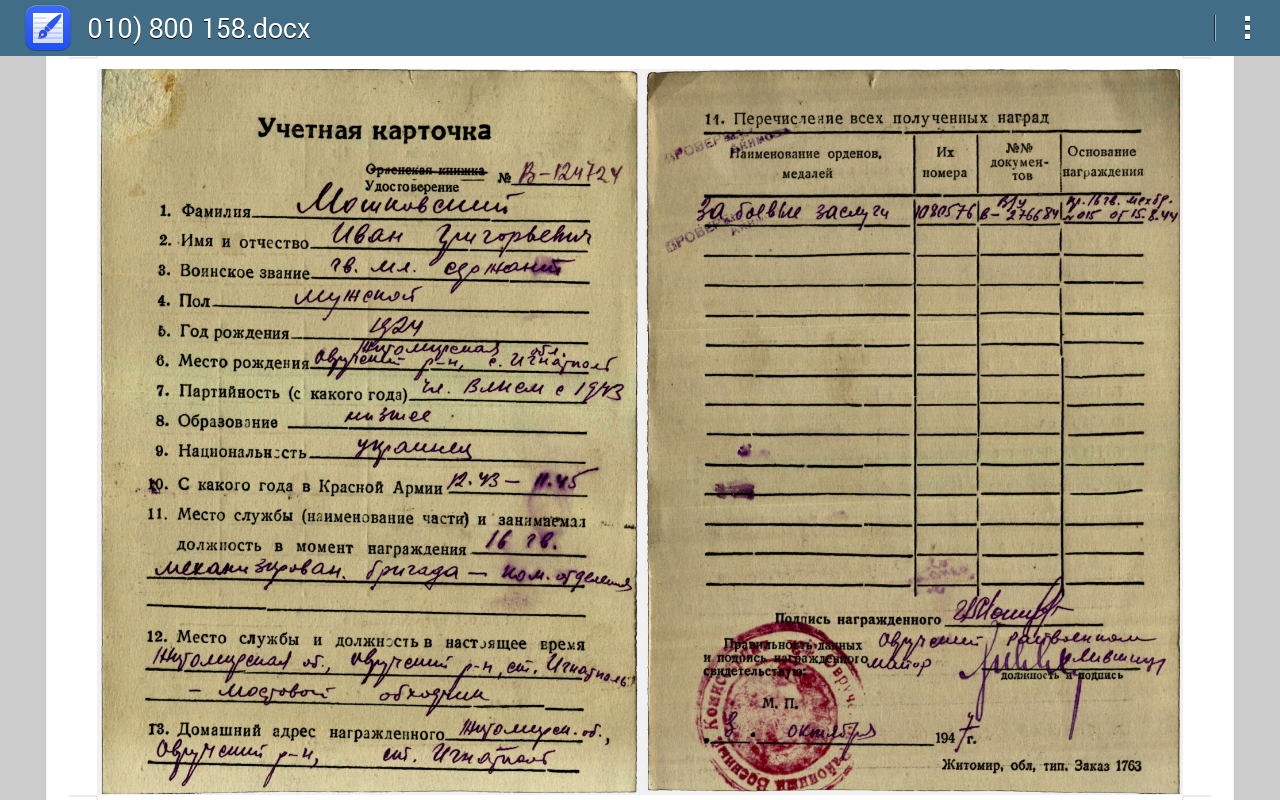 010) 800 158.docx
Учетная карточка
Орденская книжка
Удостоверение
№ В-124724
1. Фамилия Мошковский
2. Имя и отчество Иван Григорьевич
3. Воинское звание гв. мл. сержант
4. Пол мужской
5. Год рождения 1924
Житомирская обл.
6. Место рождения Овручский р-н, с. Игнатполь
7. Партийность (с какого года) чл. ВЛКСМ с 1943
8. Образование низшее
9. Национальность украинец
10. С какого года в Красной Армии 12.43 – 11.45
11. Место службы (наименование части) и занимаемая
должность в момент награждения 16 гв.
механизирован. бригада – ком. отделения
12. Место службы и должность в настоящее время
Житомирская об., Овручский р-н, ст. Игнатполь
– мостовой обходчик
13. Домашний адрес награжденного Житомирск. об.,
Овручский р-н, ст. Игнатполь
14. Перечисление всех полученных наград
ПРОВЕРЕНО
Наименование орденов, медалей
Их номера
№№ документов
Основание награждения
За боевые заслуги
1080576
В/у В-276684
пр. 16 гв. мехбр. № 015 от 15.8.44
Подпись награжденного
Правильность данных
и подпись награжденного
свидетельствую:
Овручский райвоенком
майор
должность и подпись
М. П.
Районный Военный Комис
Овруч
октября 1947 г.
Житомир, обл, тип. Заказ 1763